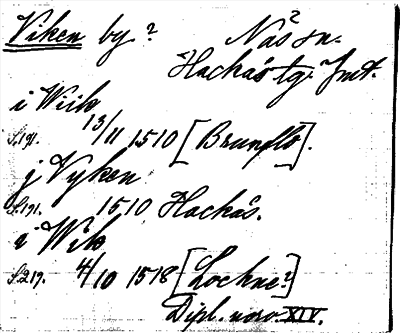 Viken by? Näs sn.
Hackås tg. Jmt.
i Wiik
S.191. 13/11 1510 [Brunflo].
j Vyken
S.191. 1510 Hackås.
i Wik
S.219. 4/10 1518 [Lockne?]
Dipl. norv. XIV.